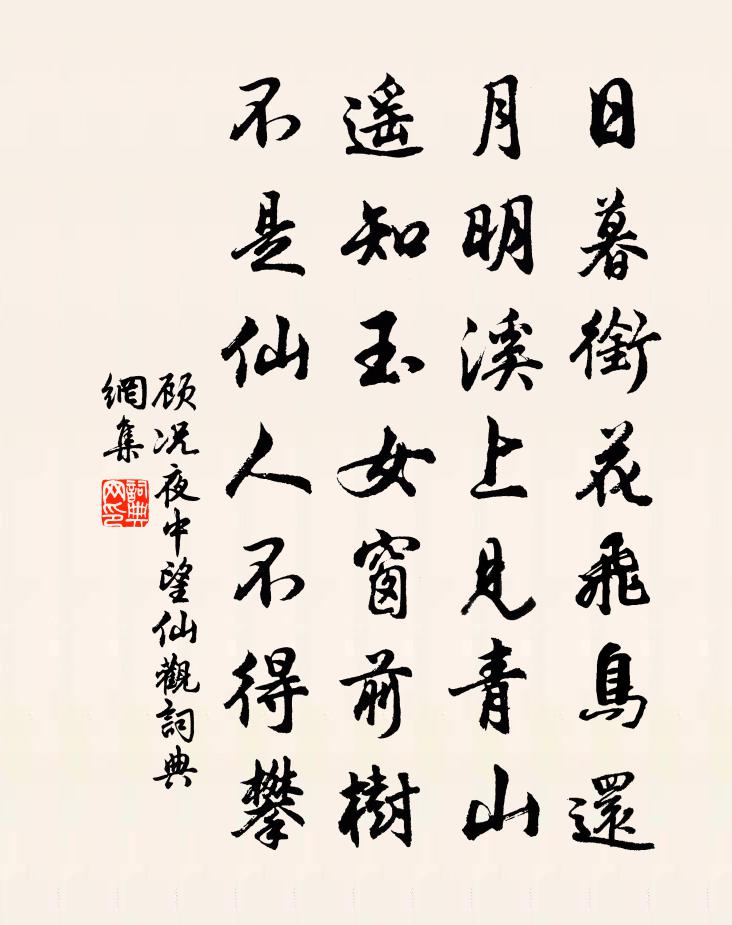 日暮銜花飛鳥還
月明溪上見青山
遥知玉女窗前樹
不是仙人不得攀
顾况夜中望仙觀詞典
網集
詞典
网印